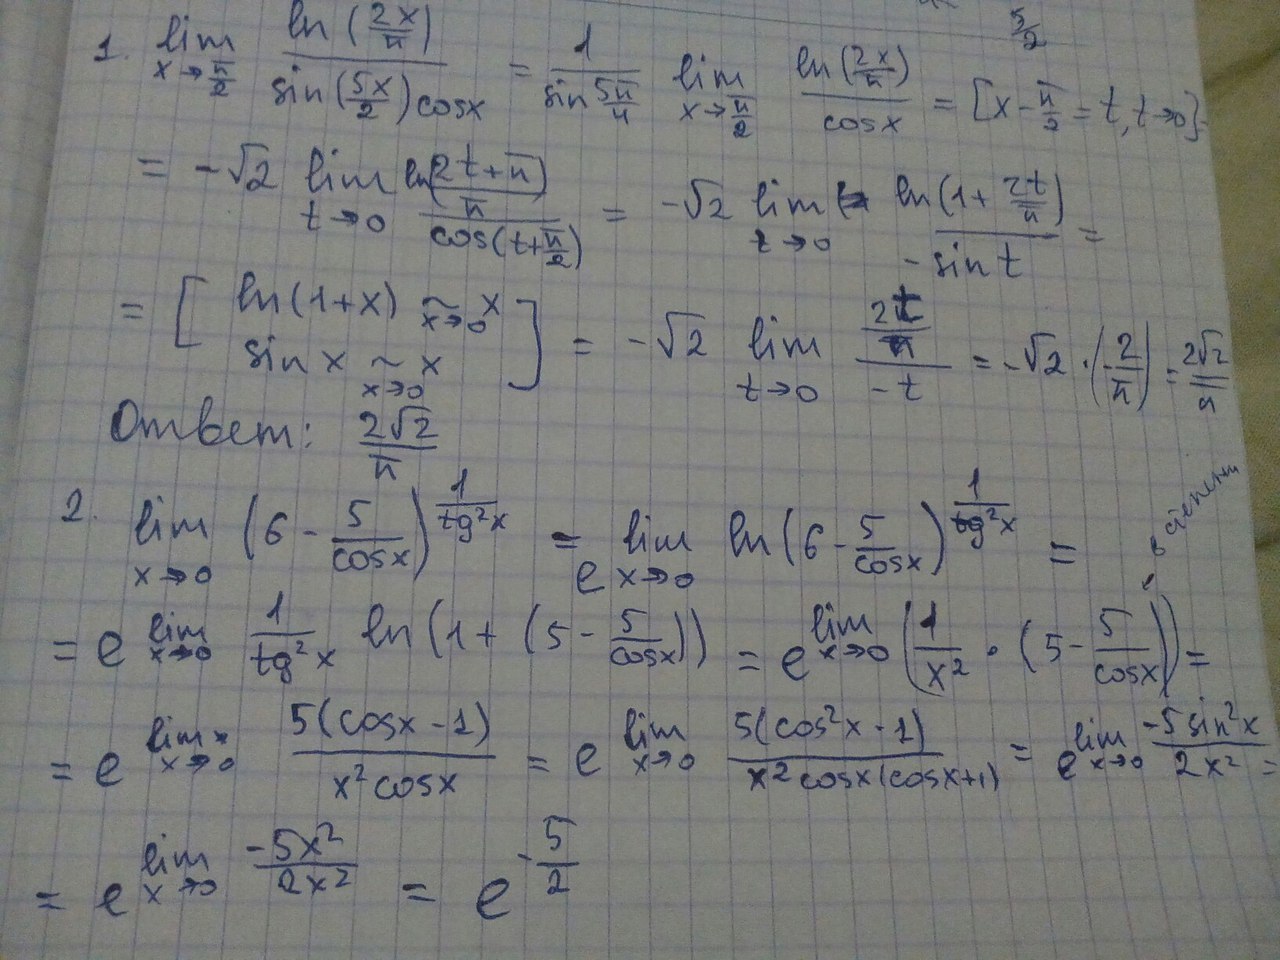 5/2
1. lim x→π/2 ln(2x/π) / (sin(5x/2) cosx) = 1/(sin 5π/4) lim x→π/2 ln(2x/π)/cosx = [x - π/2 = t, t→0] =
= -√2 lim t→0 ln((2t+π)/π) / cos(t+π/2) = -√2 lim t→0 ln(1+ 2t/π) / -sin t =
= [ ln(1+x) ~ x→0 x sin x ~ x→0 x ] = -√2 lim t→0 (2t/π) / -t = -√2 · (-2/π) = 2√2/π
Ответ: 2√2/π
2. lim x→0 (6 - 5/cosx)^(1/tg²x) = e lim x→0 ln(6 - 5/cosx)^(1/tg²x) = в степени
= e lim x→0 1/tg²x ln(1+ (5 - 5/cosx)) = e lim x→0 (1/x² · (5 - 5/cosx)) =
= e lim x→0 5(cosx - 1) / x² cosx = e lim x→0 5(cos²x - 1) / x² cosx(cosx+1) = e lim x→0 -5sin²x / 2x² =
= e lim x→0 -5x² / 2x² = e^(-5/2)